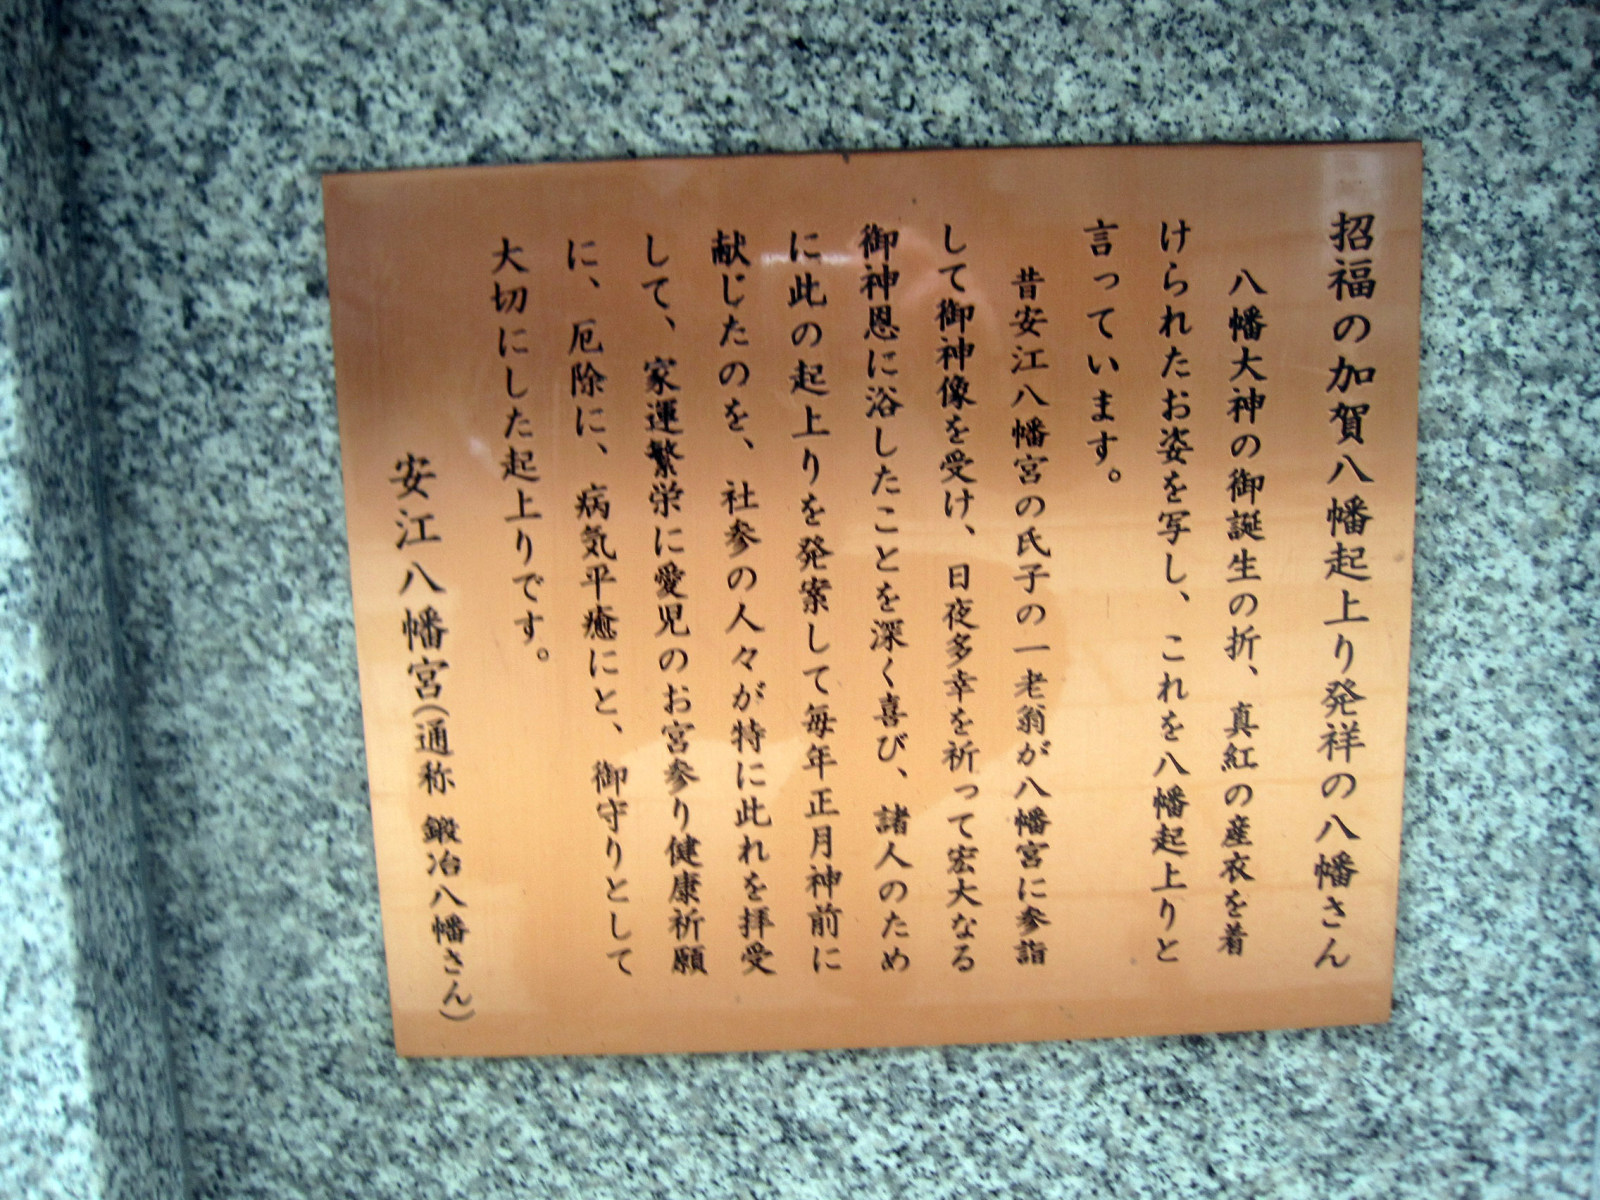 招福の加賀八幡起上り発祥の八幡さん
八幡大神の御誕生の折、真紅の産衣を着
けられたお姿を写し、これを八幡起上りと
言っています。
昔安江八幡宮の氏子の一老翁が八幡宮に参詣
して御神像を受け、日夜多幸を祈って宏大なる
御神恩に浴したことを深く喜び、諸人のため
に此の起上りを発案して毎年正月神前に
献じたのを、社参の人々が特に此れを拝受
して、家運繁栄に愛児のお宮参り健康祈願
に、厄除に、病気平癒にと、御守りとして
大切にした起上りです。
安江八幡宮(通称 鍛冶八幡さん)